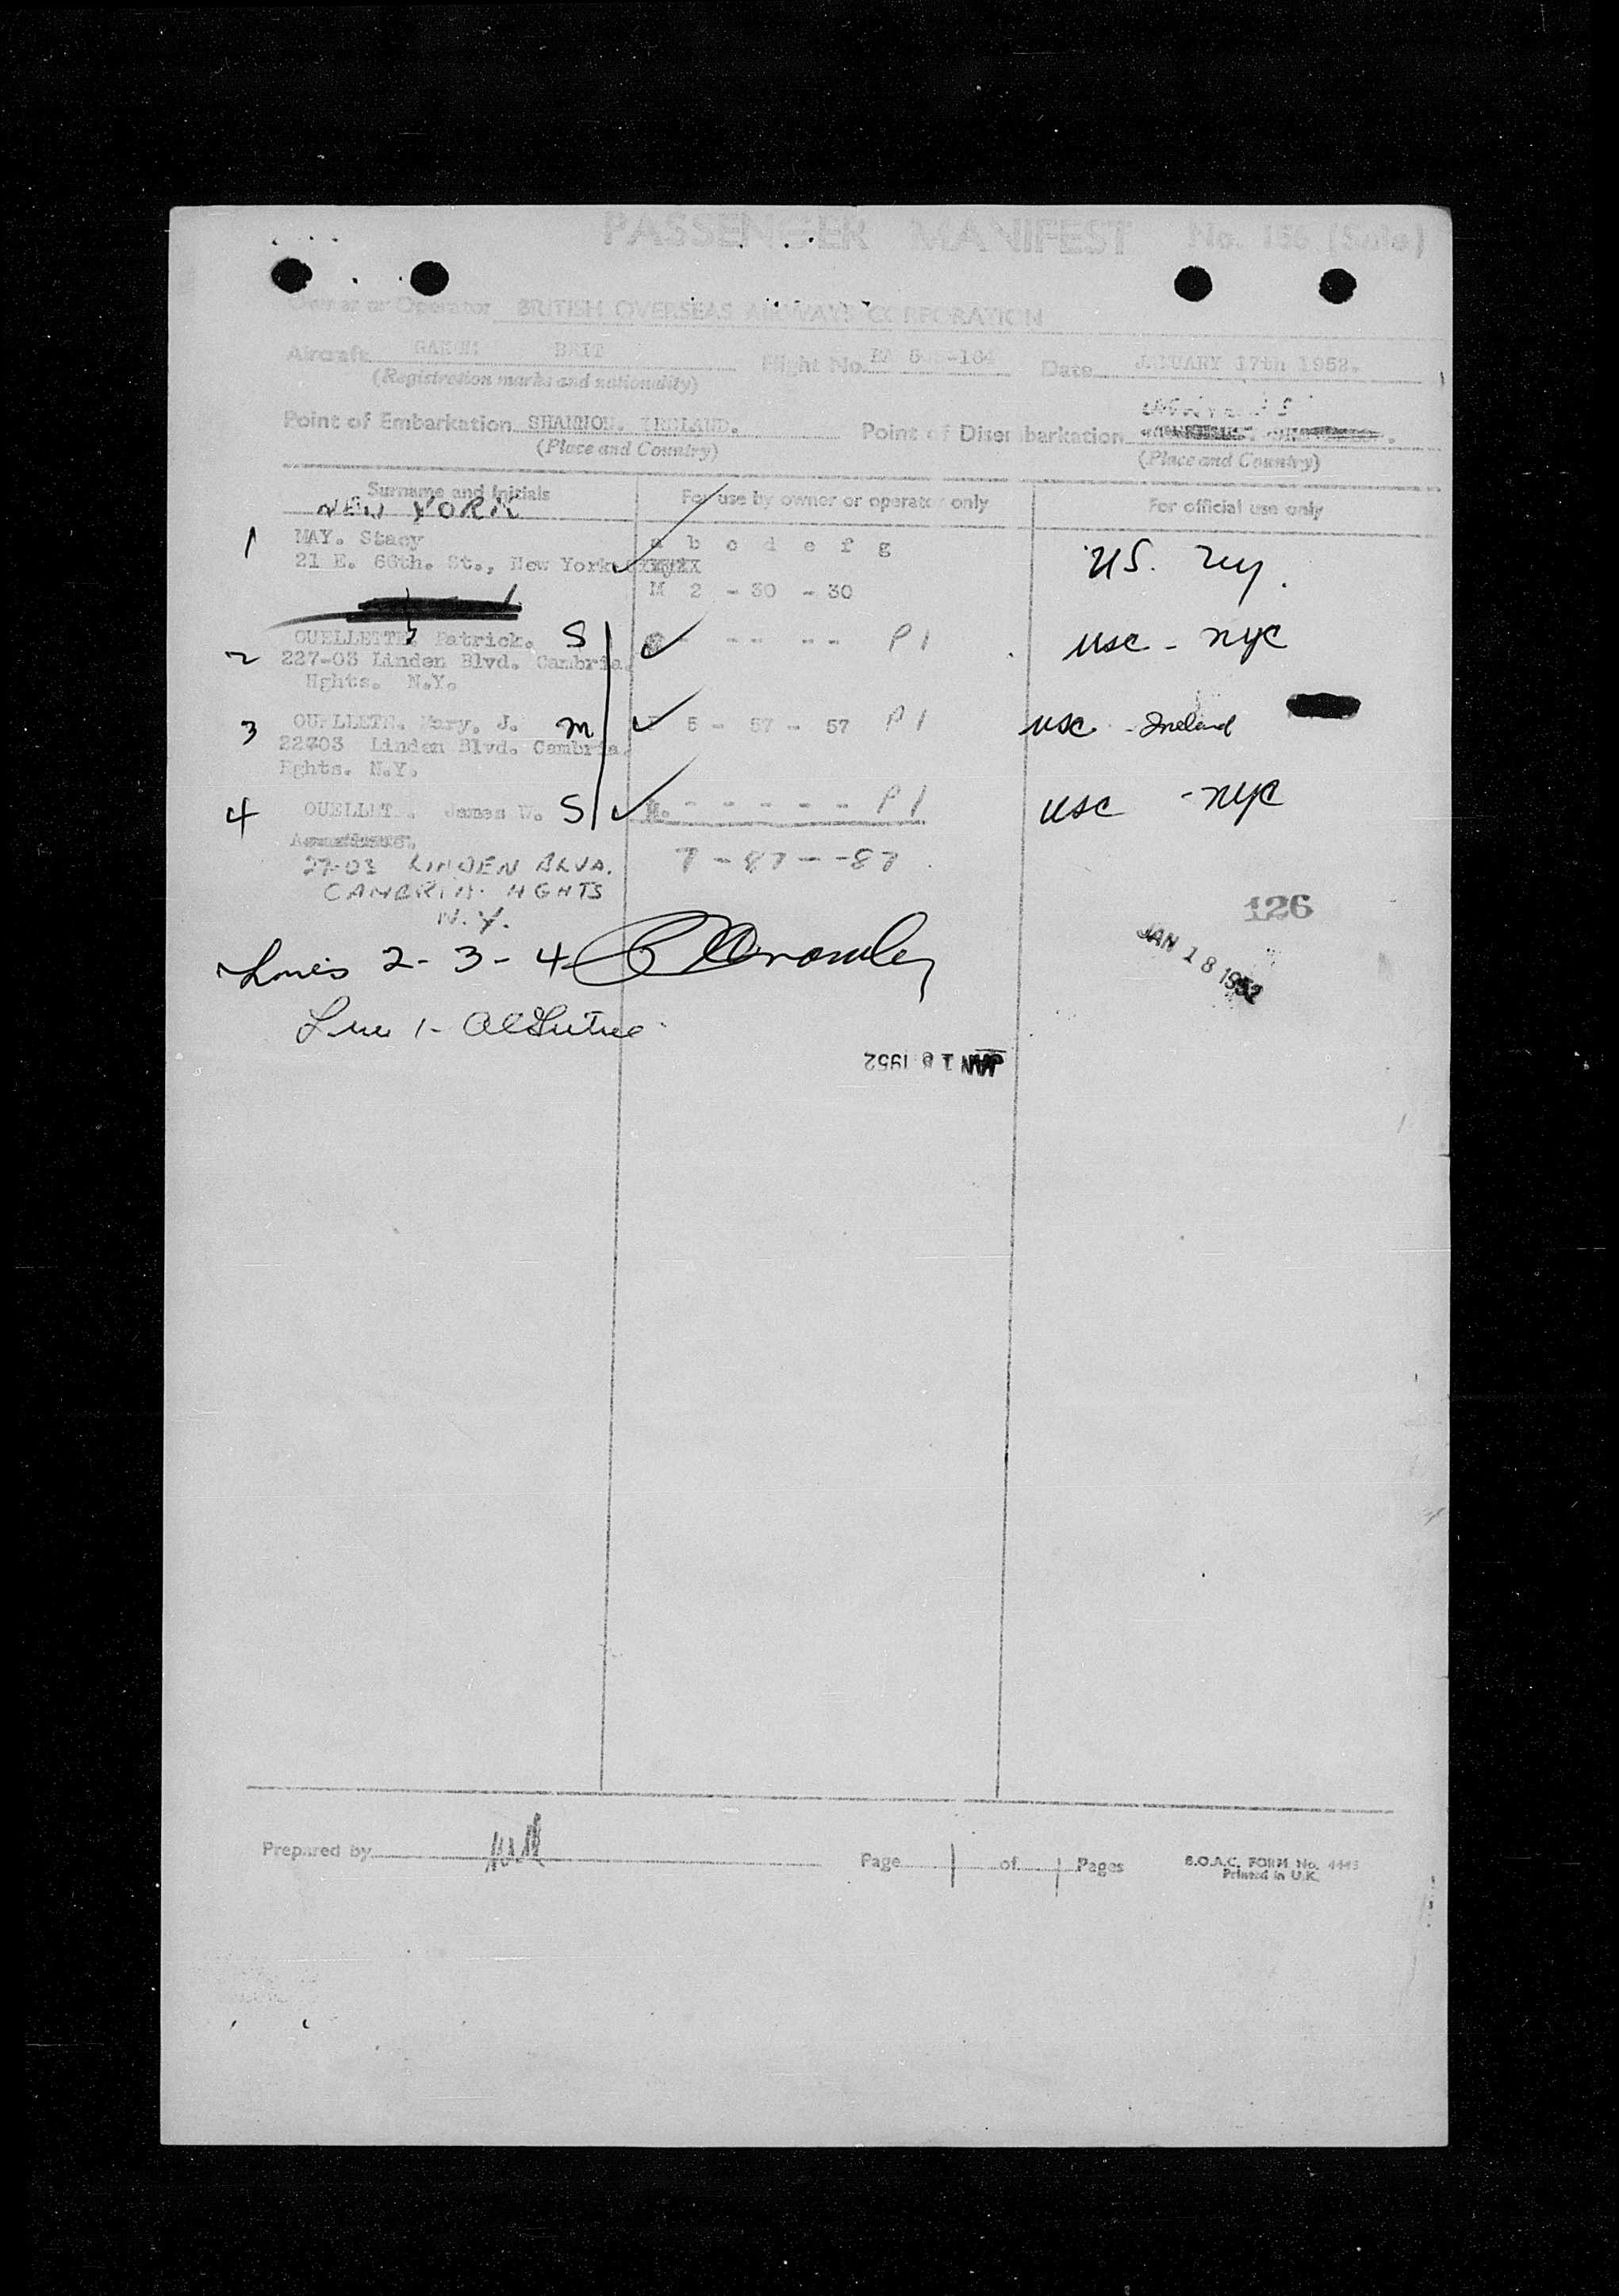 PASSENGER MANIFEST No. 156 (Sale)
Owner or Operator BRITISH OVERSEAS AIRWAYS CORPORATION
Aircraft BRIT Flight No. Date JANUARY 17th 1952.
(Registration marks and nationality)
Point of Embarkation SHANNON. IRELAND. Point of Disembarkation
(Place and Country) (Place and Country)
Surname and Initials For use by owner or operator only For official use only
NEW YORK
1 MAY. Stacy a b c d e f g
21 E. 66th. St., New York U.S. ny.
M 2 - 30 - 30
2 OUELLETTE, Patrick. S - -- -- P1 usc - nyc
227-03 Linden Blvd. Cambria.
Hghts. N.Y.
3 OUELLETE. Mary. J. m 5 - 57 - 57 P1 usc - Ireland
22703 Linden Blvd. Cambria.
Hghts. N.Y.
4 OUELLET. James W. S M. - - - - - P1 usc - nyc
27-03 LINDEN BLVD. 7 - 87 - -87
CAMBRIA HGHTS
N.Y.
126
JAN 18 1952
Lines 2 - 3 - 4
Line 1 -
JAN 1 1952
Prepared by Page 1 of 1 Pages B.O.A.C. FORM No. 4443
Printed in U.K.